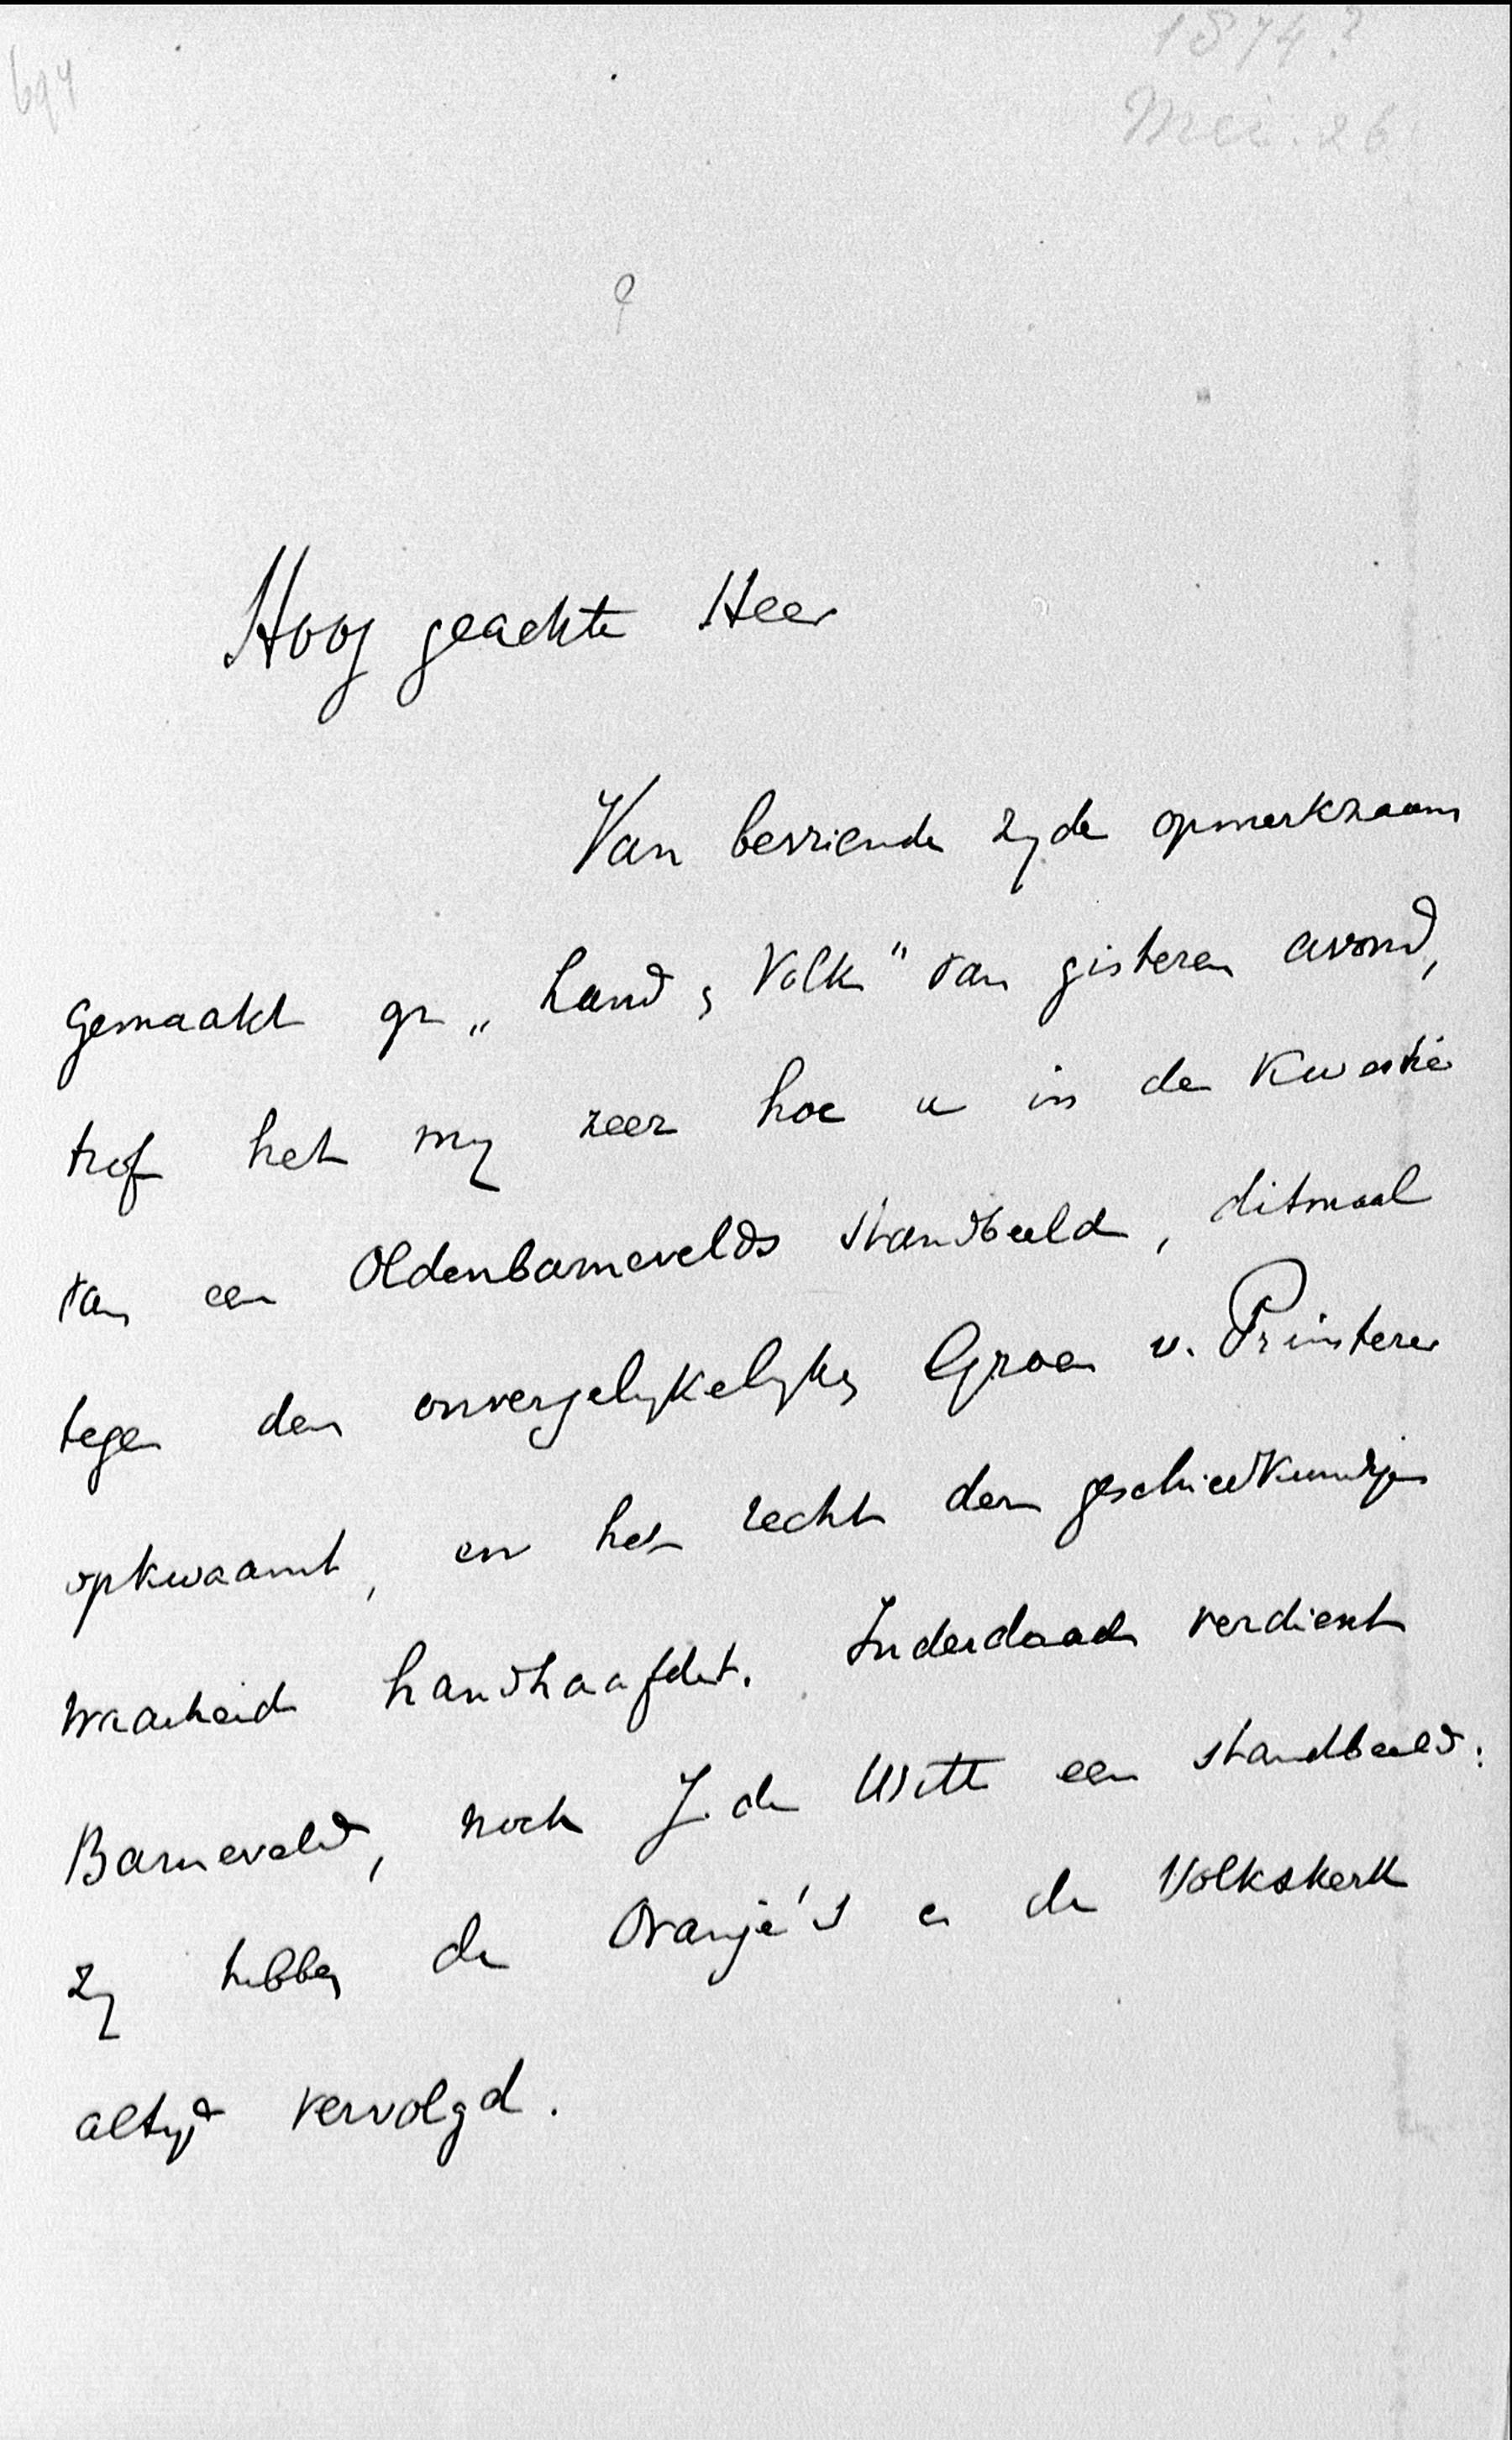 1874?
694
Mei. 26
Hoog geachte Heer
Van bevriende zyde opmerkzaam
gemaakt op „Land & Volk" van gisteren avond,
trof het my zeer hoe u in de Kwestie
van een Oldenbarnevelds standbeeld, ditmaal
tegen den onvergelykelyken Groen v. Prinsterer
opkwaamt, en het recht der geschiedkundige
waarheid handhaafdet. Inderdaad verdient
Barneveld, noch J. de Witt een standbeeld:
zy hebben de Oranje's en de Volkskerk
altyd vervolgd.